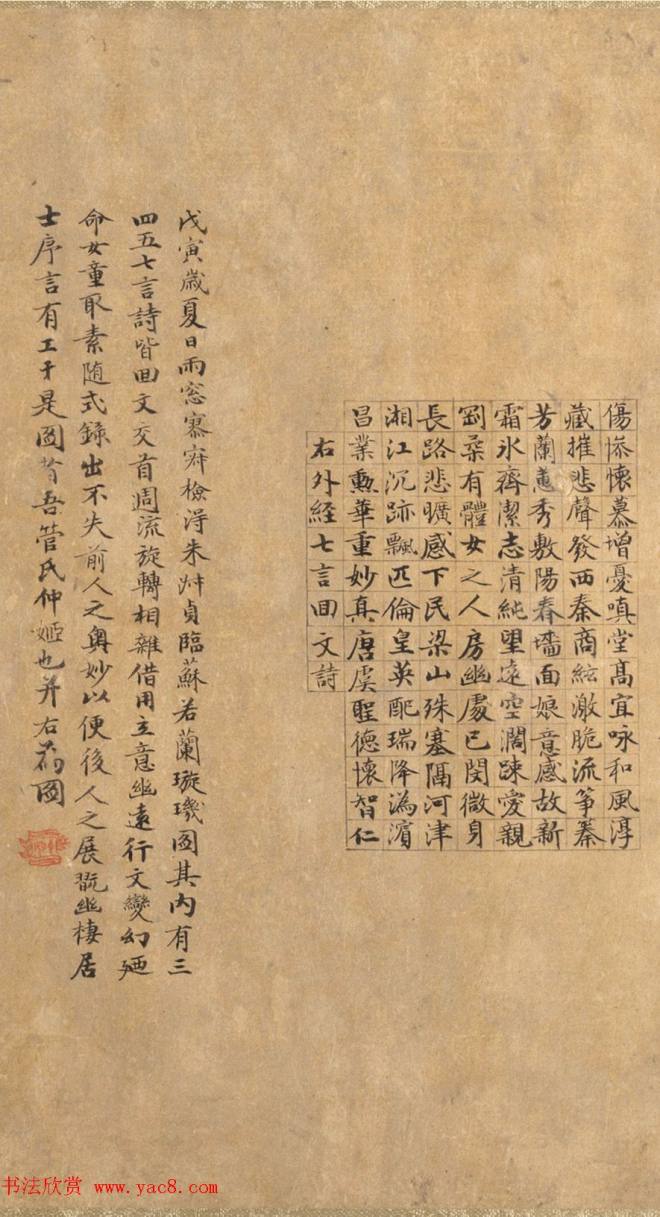 傷慘懷慕增憂嗔堂髙宜咏和風淳
藏摧悲聲發西秦商絃激脆流筝
芳蘭蕙秀敷陽春墻面娘意感故新
霜氷齊潔志清純望遠空濶踈愛親
剛柔有體女之人房幽處已閔微身
長路悲曠感下民梁山殊塞隔河津
湘江沉跡飄匹倫皇英配瑞降溈濵
昌業勲華重妙真唐虞聖德懷智仁
右外経七言回文詩
戊寅歲夏日雨窓寡寂檢淂朱淑貞臨蘇若蘭璇璣圖其內有三
四五七言詩皆回文交首週流旋轉相雜借用立意幽遠行文變幻廼
命女童取素随式錄出不失前人之奥妙以便後人之展翫幽棲居
士序言有工于是圖者吾管氏仲姬也并右爲圖
书法欣赏 www.yac8.com